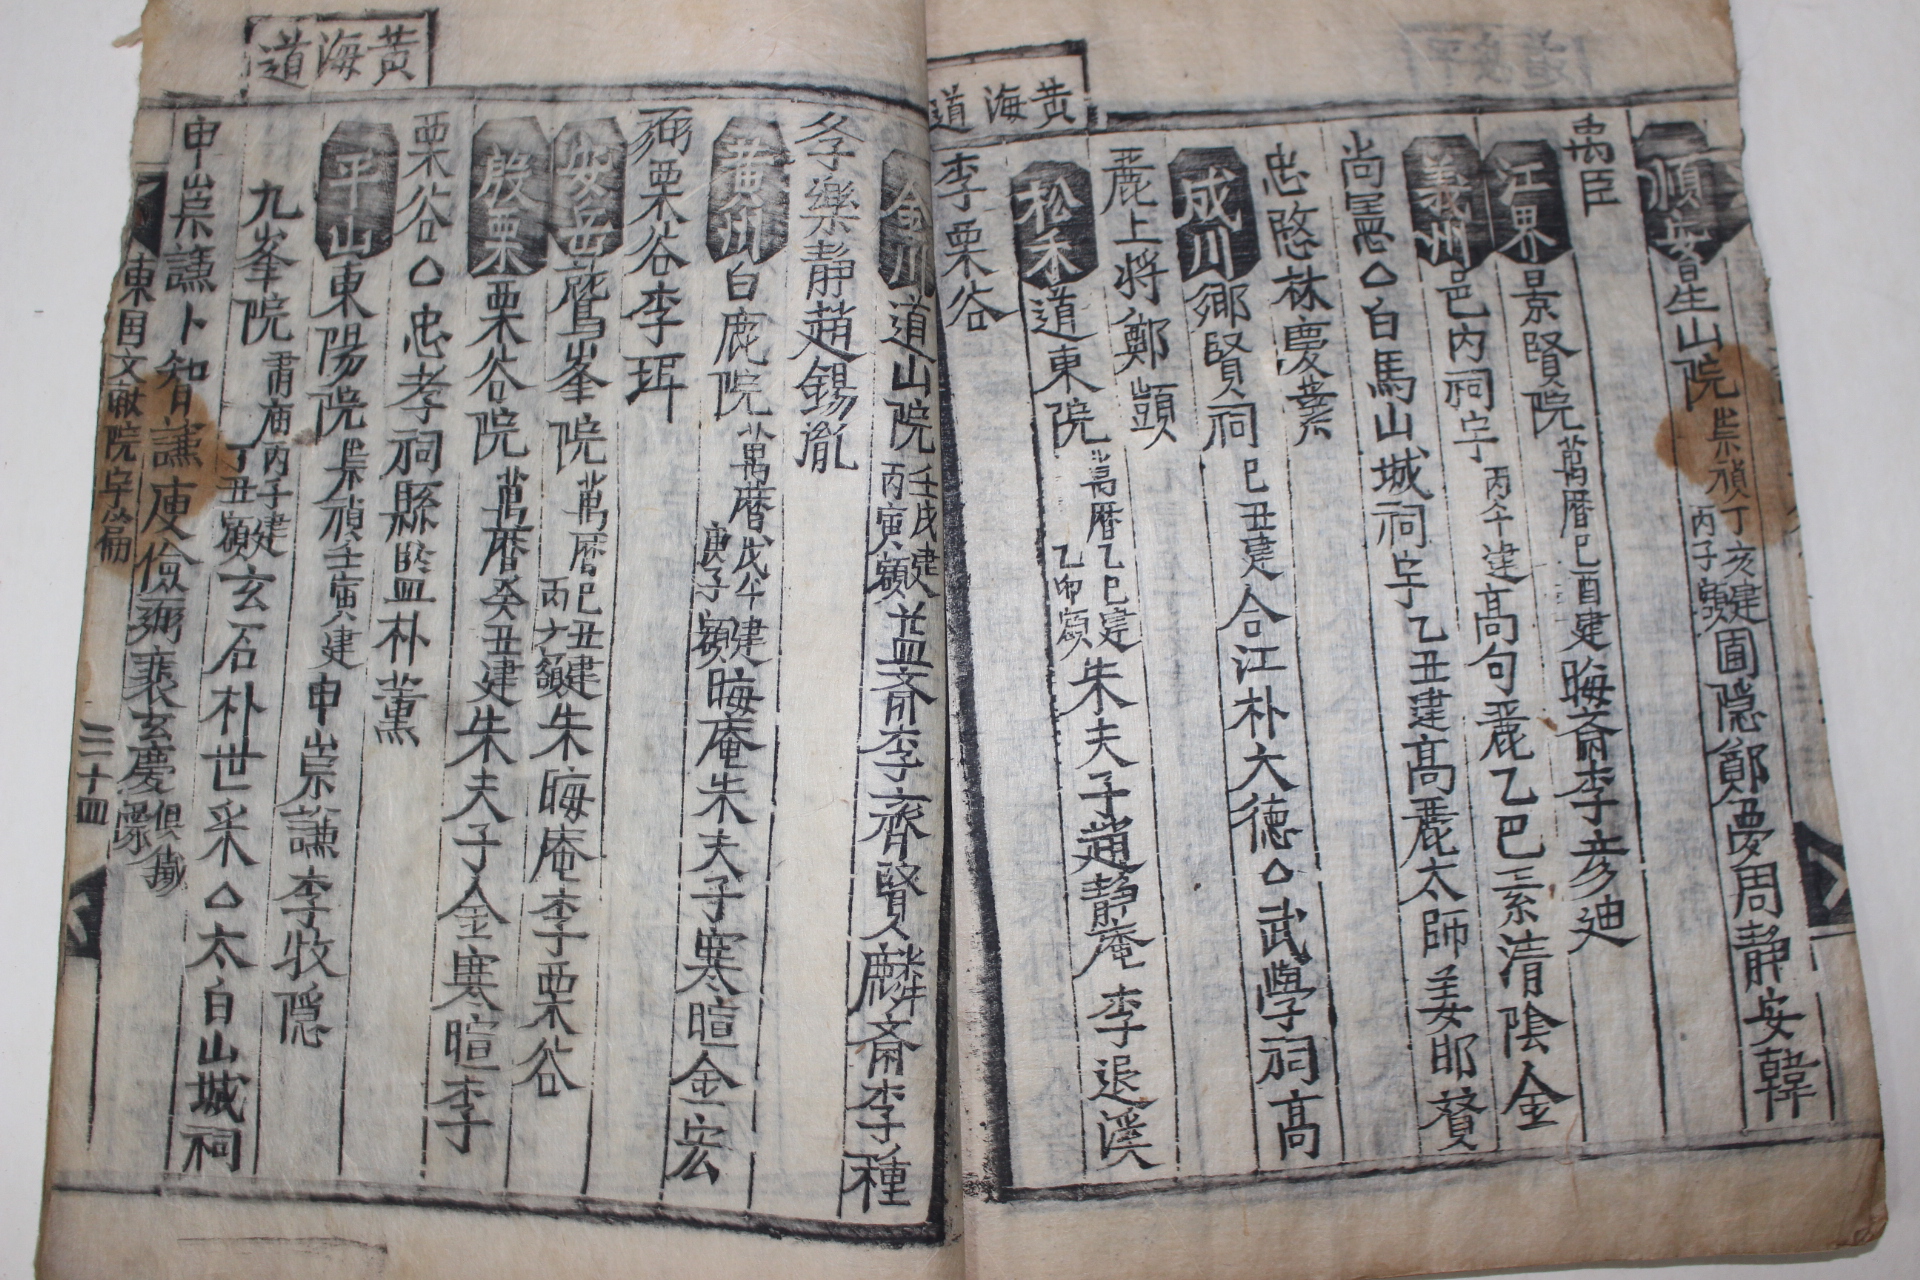 黃海道
順安 星山院 崇禎丁亥建 丙子額 圃隱鄭夢周靜安韓
禹臣
江界 景賢院 萬曆己酉建 晦齋李彦迪
義州 邑內祠宇 丙午建 高句麗乙巴素淸陰金
尚憲△白馬山城祠宇乙丑建高麗太師姜邯贊
忠愍林慶業
成川 鄉賢祠 己丑建 合江朴大德△武學祠高
麗上將鄭顗
松禾 道東院 萬曆乙巳建 乙卯額 朱夫子趙靜庵李退溪
李栗谷
黃海道
金川 道山院 壬戌建 丙寅額 益齋李齊賢麟齋李種
李樂靜趙錫胤
黃州 白鹿院 萬曆戊午建 庚子額 晦庵朱夫子寒暄金宏
弼栗谷李珥
安岳 鷲峯院 萬曆己丑建 丙子額 朱晦庵李栗谷
殷栗 栗谷院 萬曆癸丑建 朱夫子金寒暄李
栗谷△忠孝祠縣監朴薰
平山 東陽院 崇禎壬寅建 申崇謙李牧隱
九峯院 肅廟丙子建 丁丑額 玄石朴世采△太白山城祠
申崇謙卜智謙庾儉弼裵玄慶 俱鐵像
東國文獻院宇篇
三十四